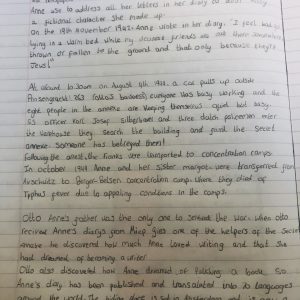 Anne use to address all her letters in her diary to
a fictional character she made up.
On the 19th November 1942 Anne wrote in her diary: "I feel
lying in a warm bed while my dearest friends are out there somewhere
thrown or fallen to the ground and that only because they're
Jews!"
At about 10:30am on August 4th, a car pulls up outside
263 everyone was busy working and the
eight people in the annexe are keeping themselves quiet but busy.
SS officer Karl Josef Silberbauer and three dutch policemen enter
the warehouse they search the building and find the secret
annexe. Someone has betrayed them!
Following the arrest, the Franks were transported to concentration camps.
In october Anne and her sister margot were transferred from
to Bergen-Belsen concentration camp where they died of
Typhus fever due to appaling conditions in the camps.
Otto Anne's father was the only one to survive the war. When otto
recived Anne's diary from Miep gies one of the helpers of the Secret
annexe he discovered how much Anne loved writing and that she
had dreamed of becoming a writer
Otto also discovered how Anne dreamed of a book. So
Anne's diary has been published and translated into 70 languages
around the world. The hiding place is